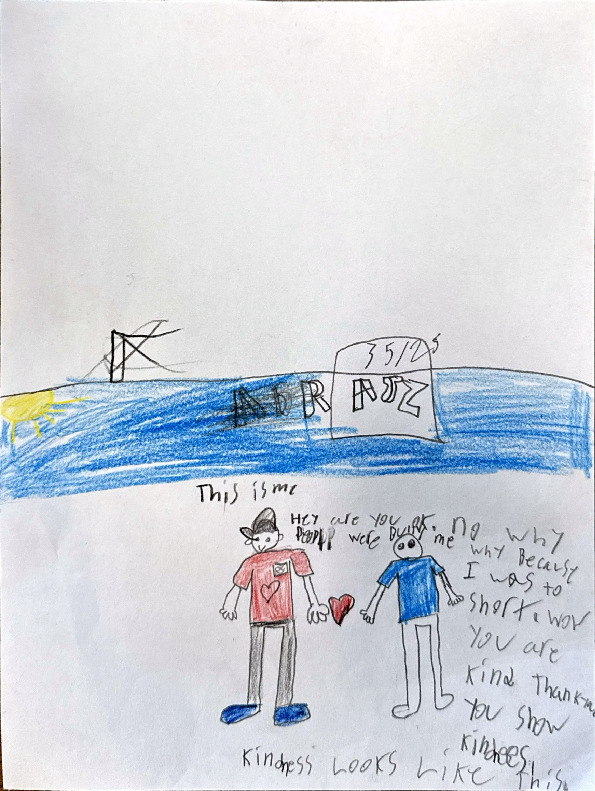 3512s
This is me
Hey are you ok. no why
People were Bully me why Because
I was to
short. wow
You are
kind Thank-you
You show
kindnees
kindness Looks Like this.